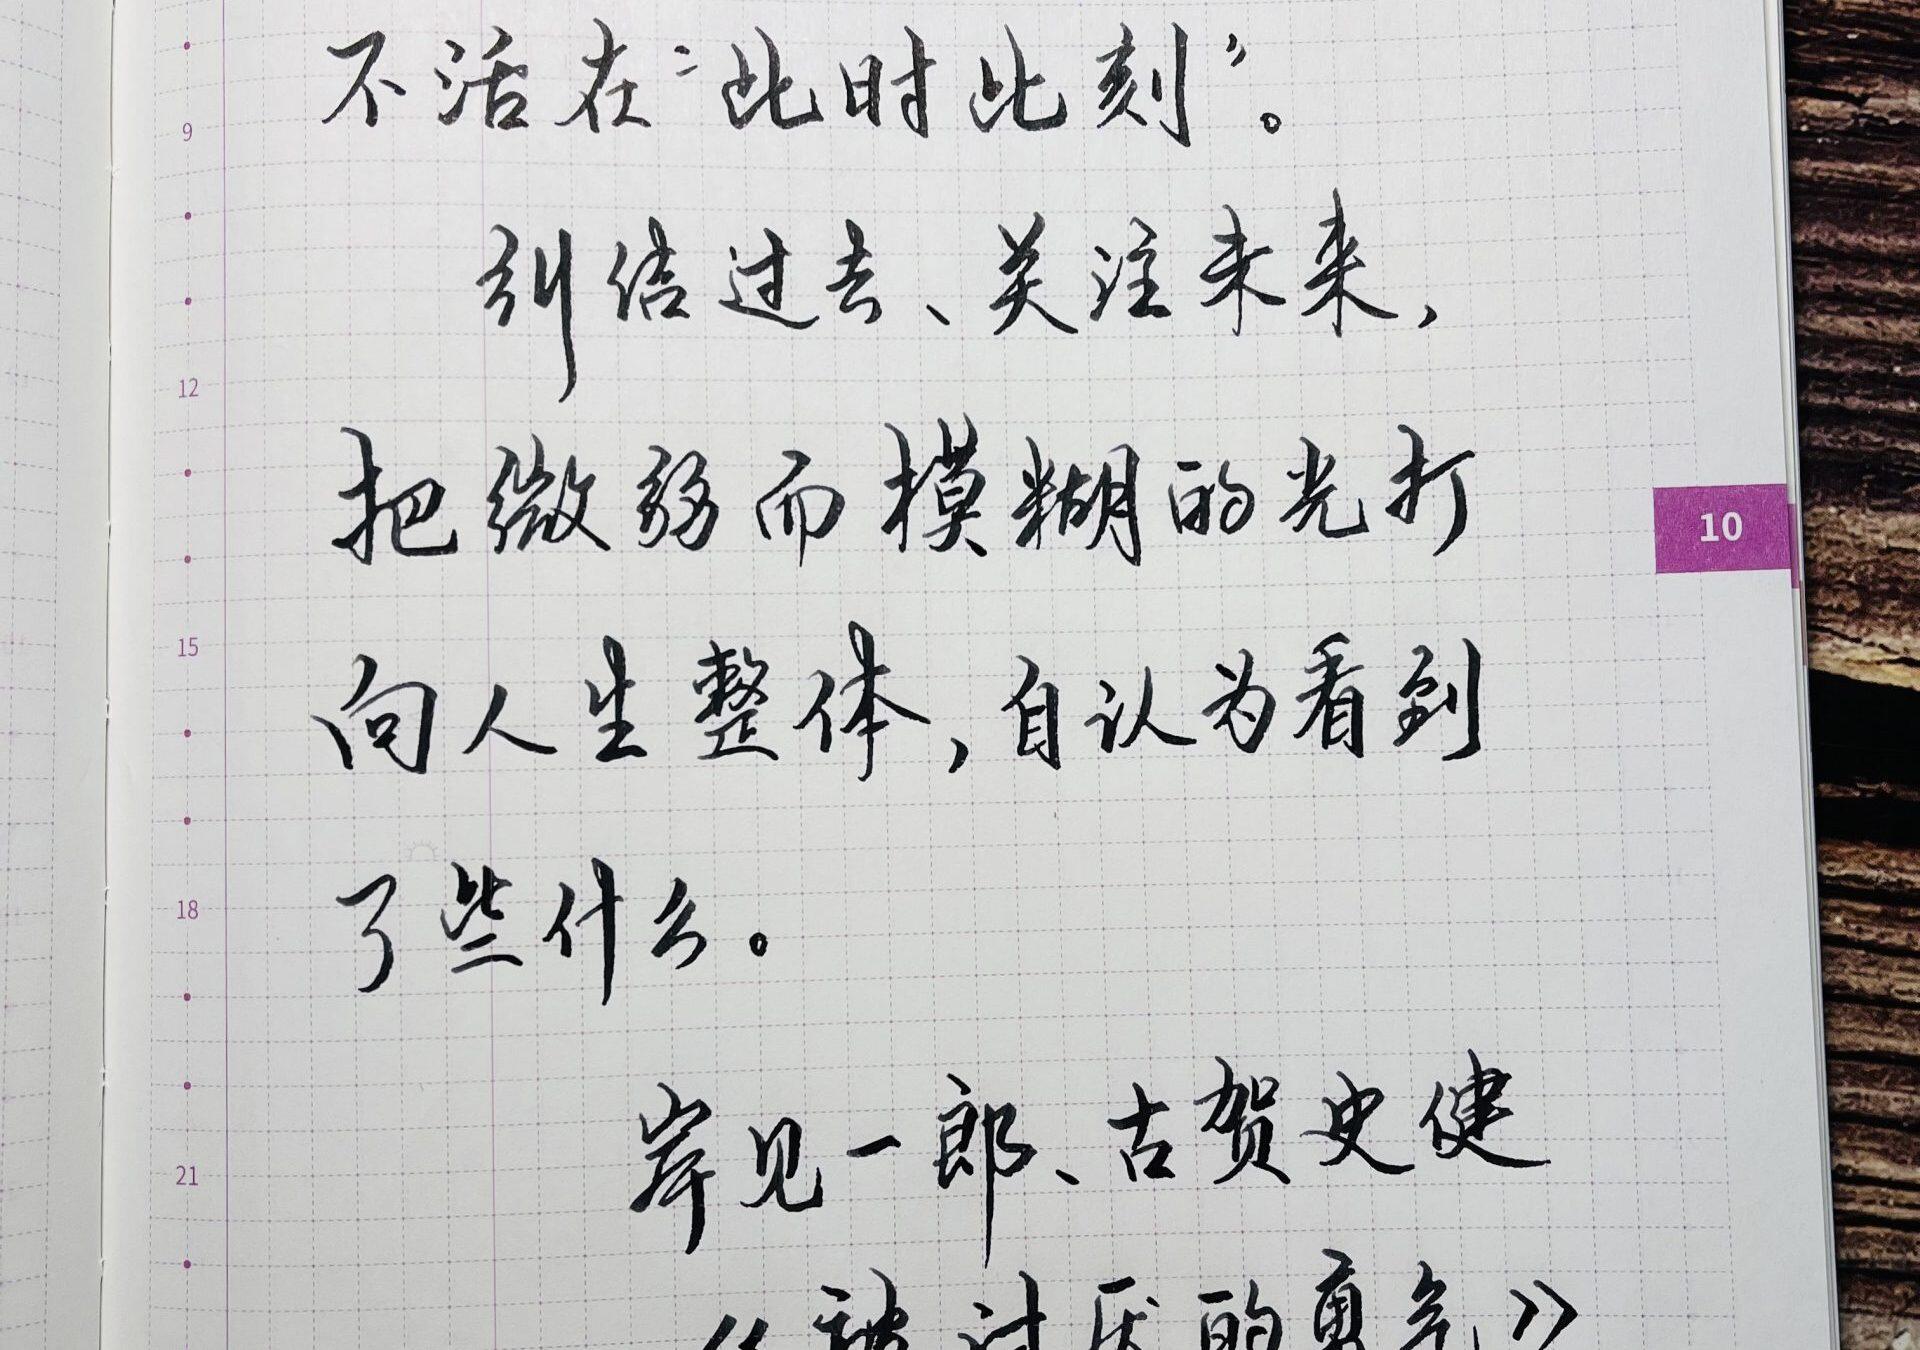 不活在“此时此刻”。
9
纠结过去、关注未来，
12
把微弱而模糊的光打
10
15
向人生整体，自认为看到
18
了些什么。
21
岸见一郎、古贺史健
《被讨厌的勇气》